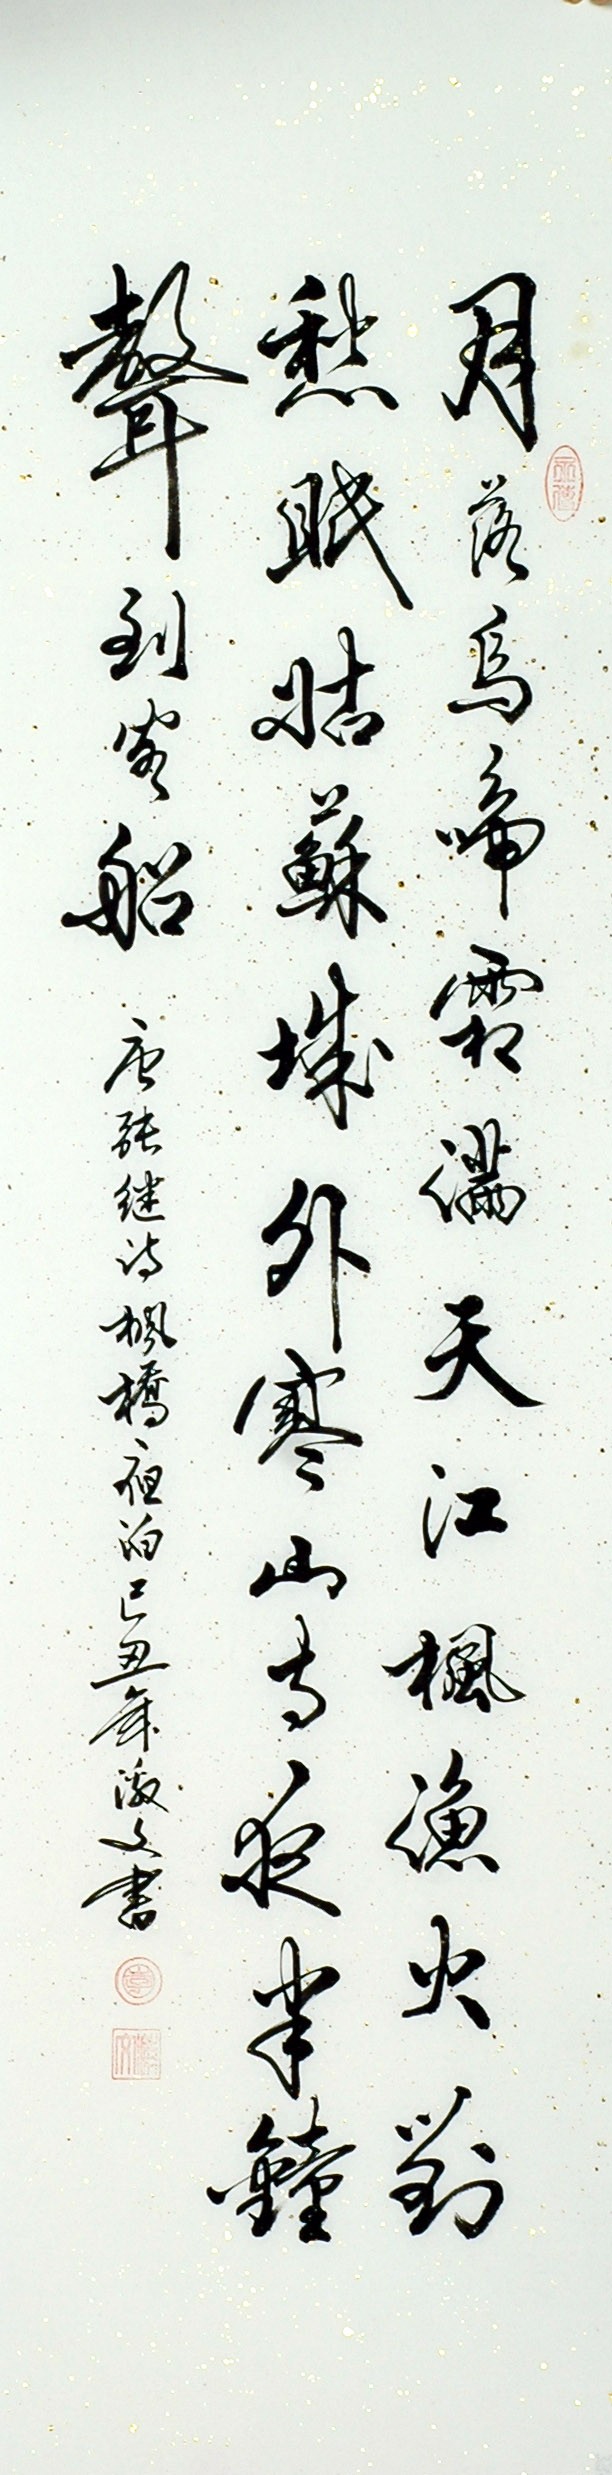 月落烏啼霜滿天江楓漁火對
愁眠姑蘇城外寒山寺夜半鐘
聲到客船
唐張继诗楓橋夜泊己丑年澂文書